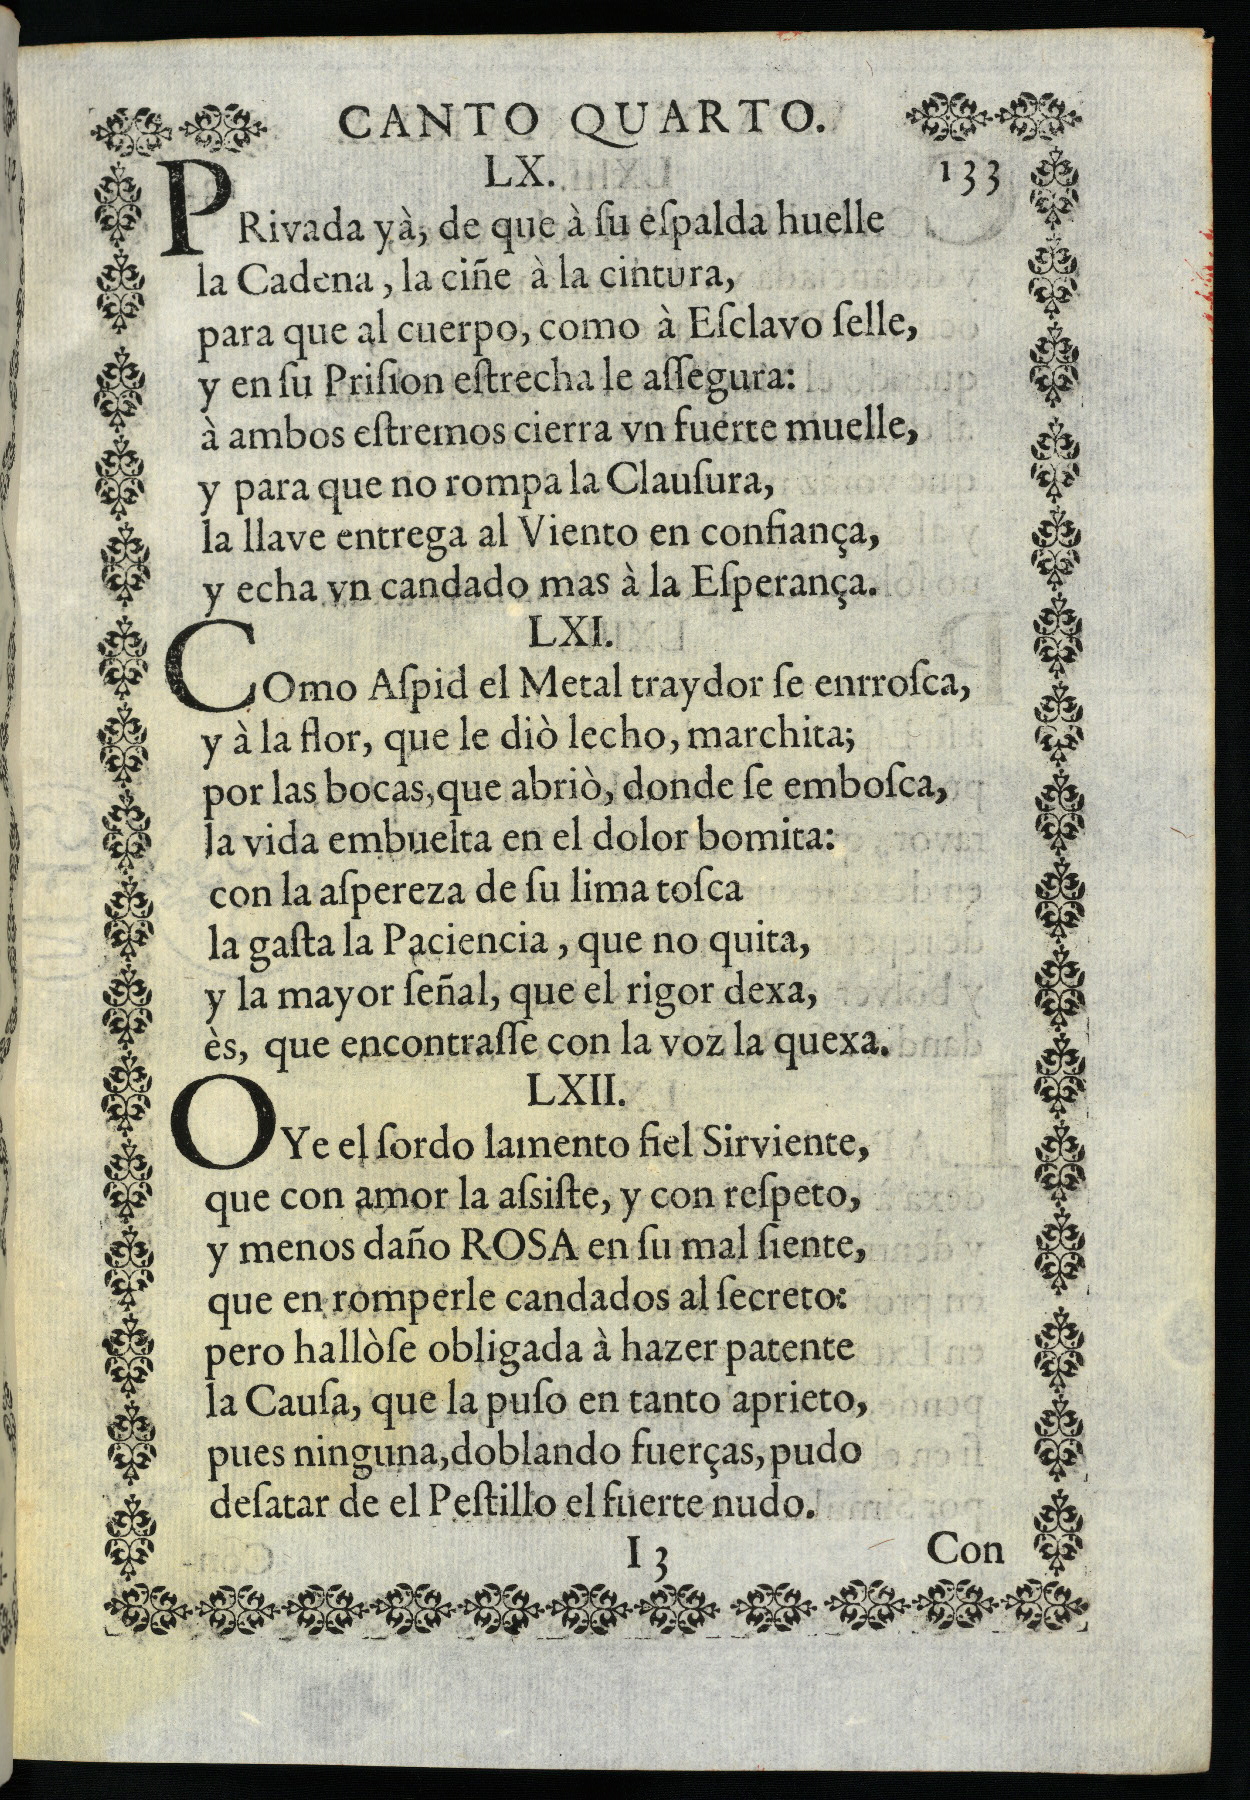 CANTO QUARTO.
LX. 133
PRivada yà, de que à ſu eſpalda huelle
la Cadena, la ciñe à la cintura,
para que al cuerpo, como à Eſclavo ſelle,
y en ſu Priſion eſtrecha le aſſegura:
à ambos eſtremos cierra vn fuerte muelle,
y para que no rompa la Clauſura,
la llave entrega al Viento en confiança,
y echa vn candado mas à la Eſperança.
LXI.
COmo Aſpid el Metal traydor ſe enrroſca,
y à la flor, que le diò lecho, marchita;
por las bocas, que abriò, donde ſe emboſca,
la vida embuelta en el dolor bomita:
con la aſpereza de ſu lima toſca
la gaſta la Paciencia, que no quita,
y la mayor ſeñal, que el rigor dexa,
ès, que encontraſſe con la voz la quexa.
LXII.
OYe el ſordo lamento fiel Sirviente,
que con amor la aſsiſte, y con reſpeto,
y menos daño ROSA en ſu mal ſiente,
que en romperle candados al ſecreto:
pero hallòſe obligada à hazer patente
la Cauſa, que la puſo en tanto aprieto,
pues ninguna, doblando fuerças, pudo
deſatar de el Peſtillo el fuerte nudo.
I 3 Con